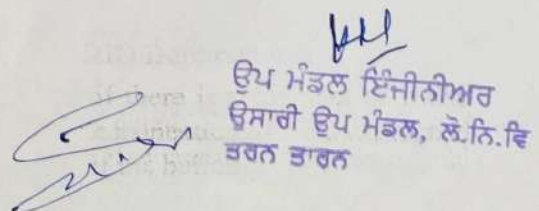 ਉਪ ਮੰਡਲ ਇੰਜੀਨੀਅਰ
ਉਸਾਰੀ ਉਪ ਮੰਡਲ, ਲੋ.ਨਿ.ਵਿ
ਤਰਨ ਤਾਰਨ